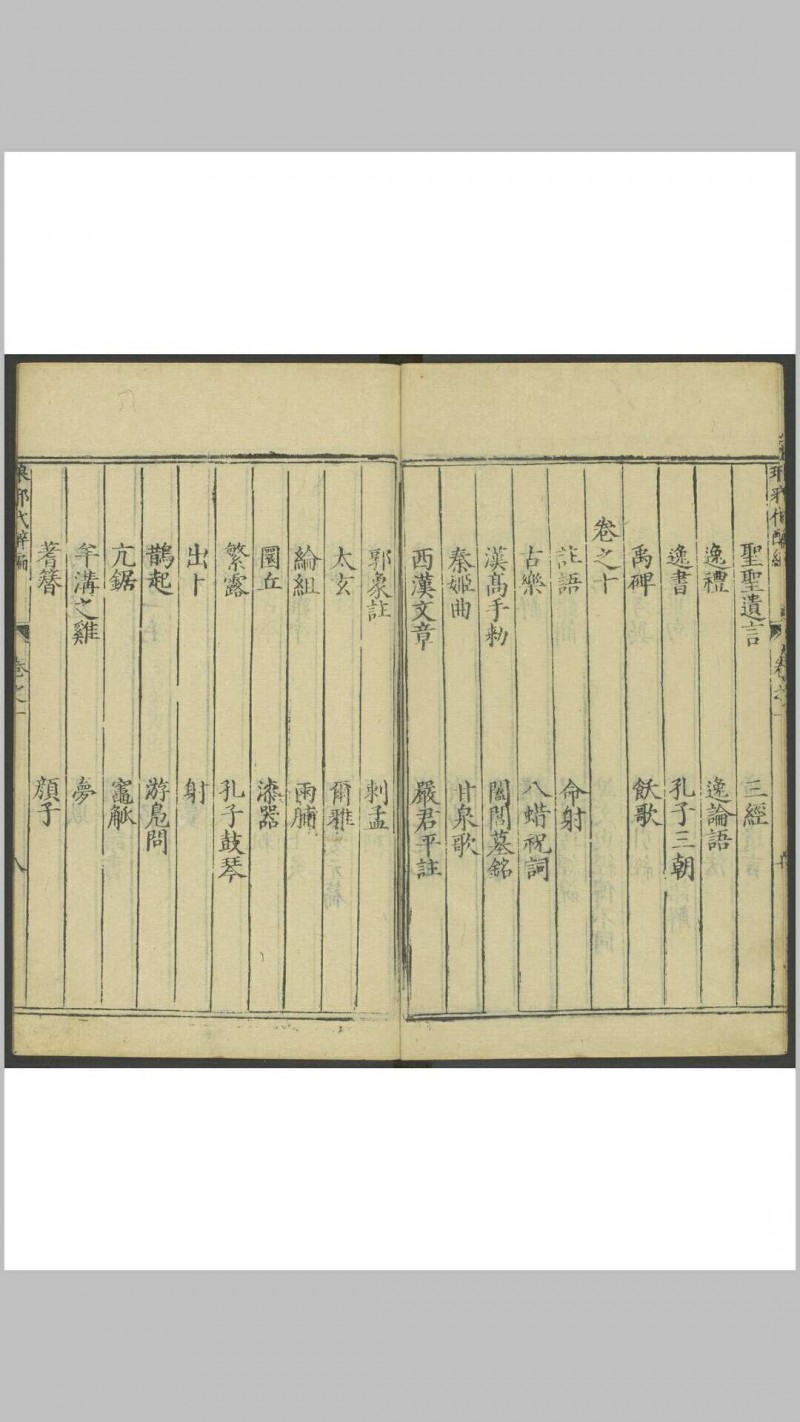 聖聖遺言 三經
逸禮 逸論語
逸書 孔子三朝
禹碑 飲歌
卷之十
註語 命射
古樂 八蜡祝詞
漢高手勑 闔閭墓銘
秦姬曲 甘泉歌
西漢文章 嚴君平註
郭象註 刺孟
太玄 爾雅
綸組 兩腩
圜丘 漆器
繁露 孔子鼓琴
出卜 射
鵲起 游鳧問
亢鋸 竈觚
牟溝之雞 夢
蓍簪 顔子
琅邪代醉編 卷之一 八